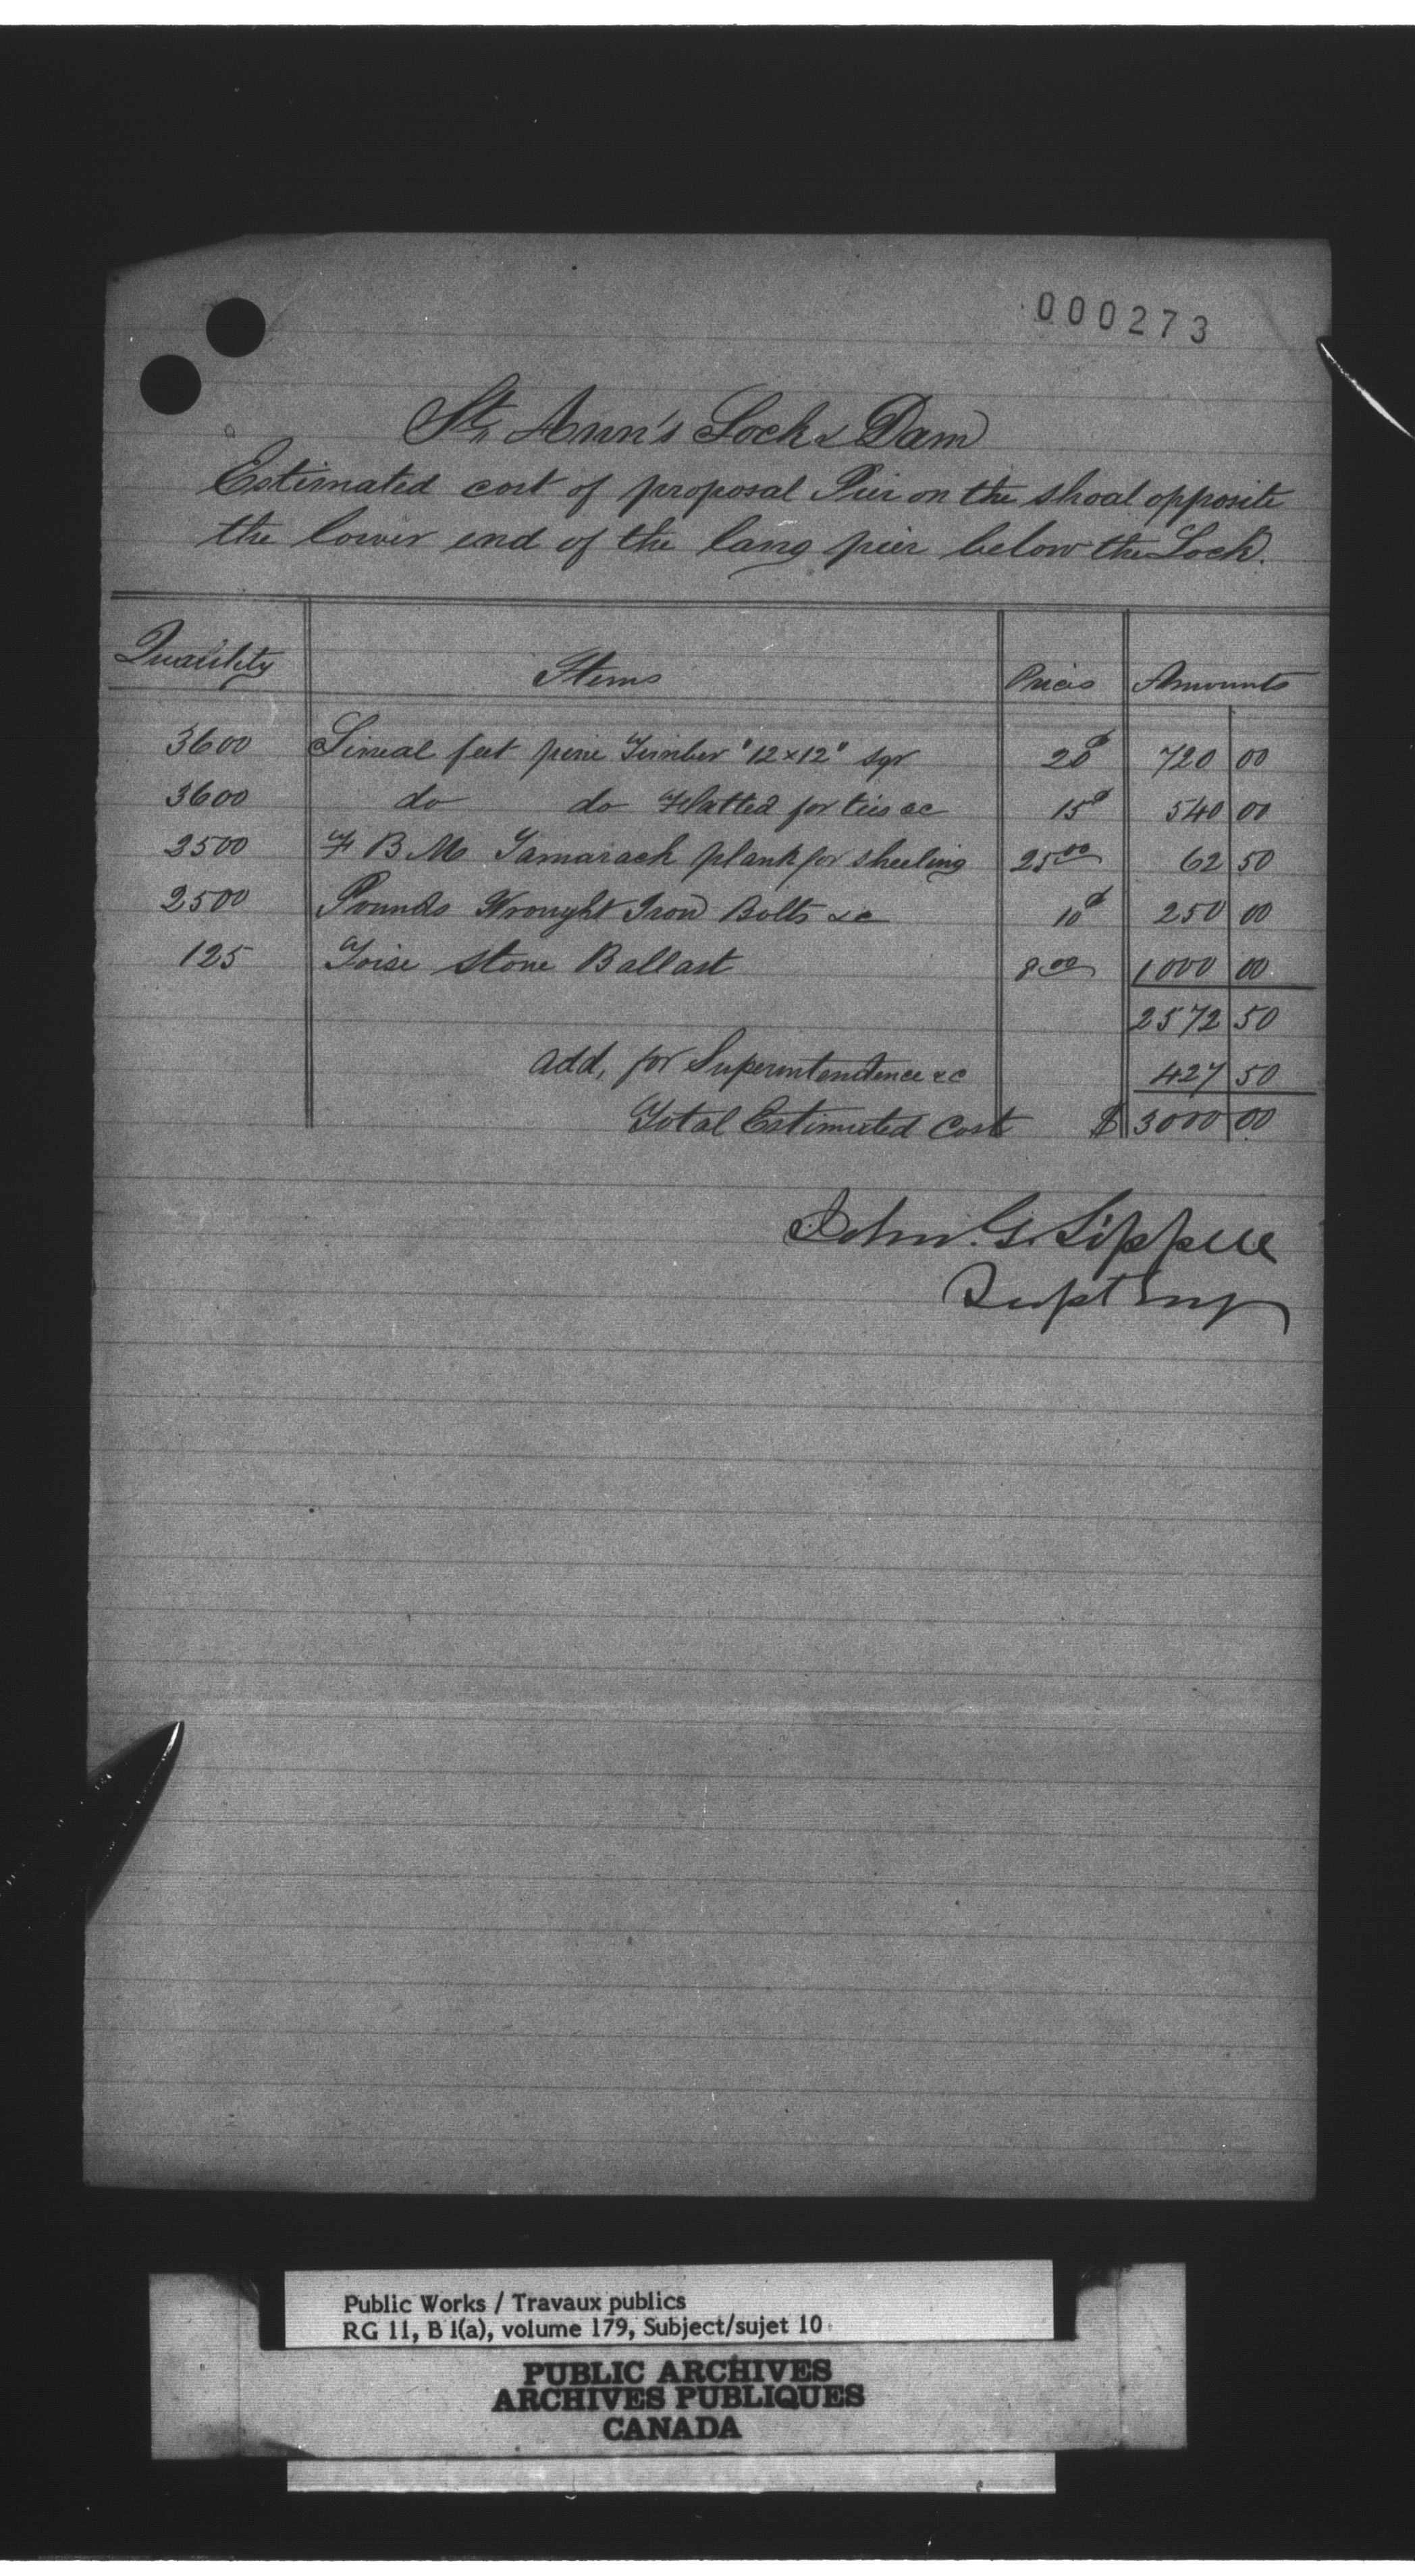 000273
St. Ann's Lock & Dam
Estimated cost of proposal Pier on the shoal opposite
the lower end of the long pier below the Lock.
Quantity Items Prices Amounts
3600 Lineal feet pine Timber "12 x 12" sqr 20¢ 720 00
3600 do do Flatted for ties &c 15¢ 540 00
2500 F B M Tamarack plank for sheeting 25.00 62 50
2500 Pounds Wrought Iron Bolts &c 10¢ 250 00
125 Toise stone Ballast 8.00 1000 00
2572 50
add, for Superintendence &c 427 50
Total Estimated Cost $ 3000 00
John. G. Sippell
Supt Eng
Public Works / Travaux publics
RG 11, B 1(a), volume 179, Subject/sujet 10
PUBLIC ARCHIVES
ARCHIVES PUBLIQUES
CANADA